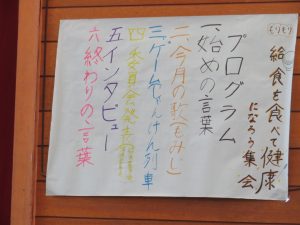 もりもり
給食を食べて健康
になろう集会
プログラム
一、始めの言葉
二、今月の歌もみじ
三、ゲームじゃんけん列車
四、委員会発表
五インタビュー
六終わりの言葉